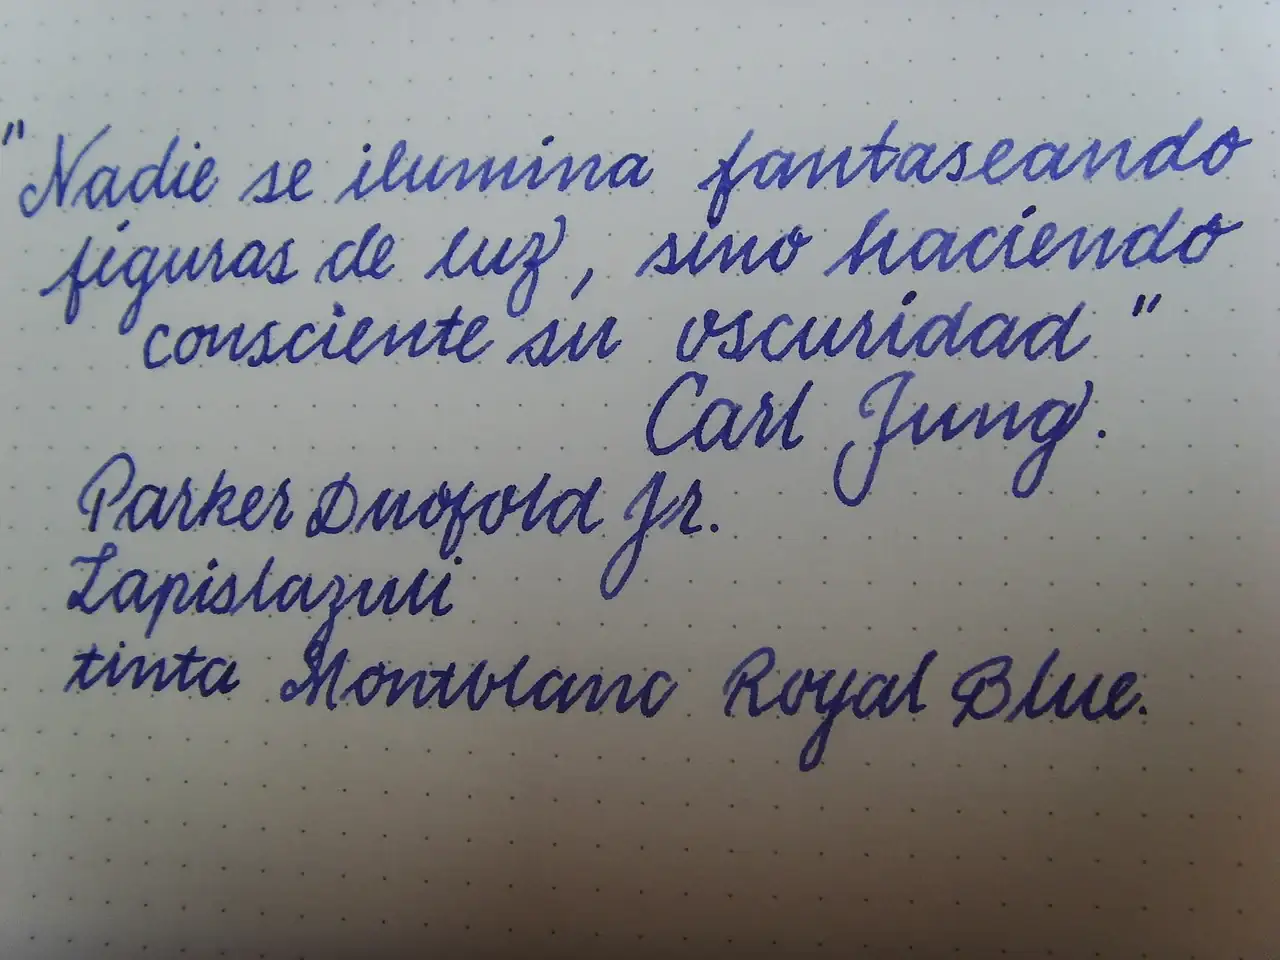 "Nadie se ilumina fantaseando
figuras de luz, sino haciendo
consciente su oscuridad"
Carl Jung.
Parker Duofold Jr.
Lapislazuli
tinta Montblanc Royal Blue.